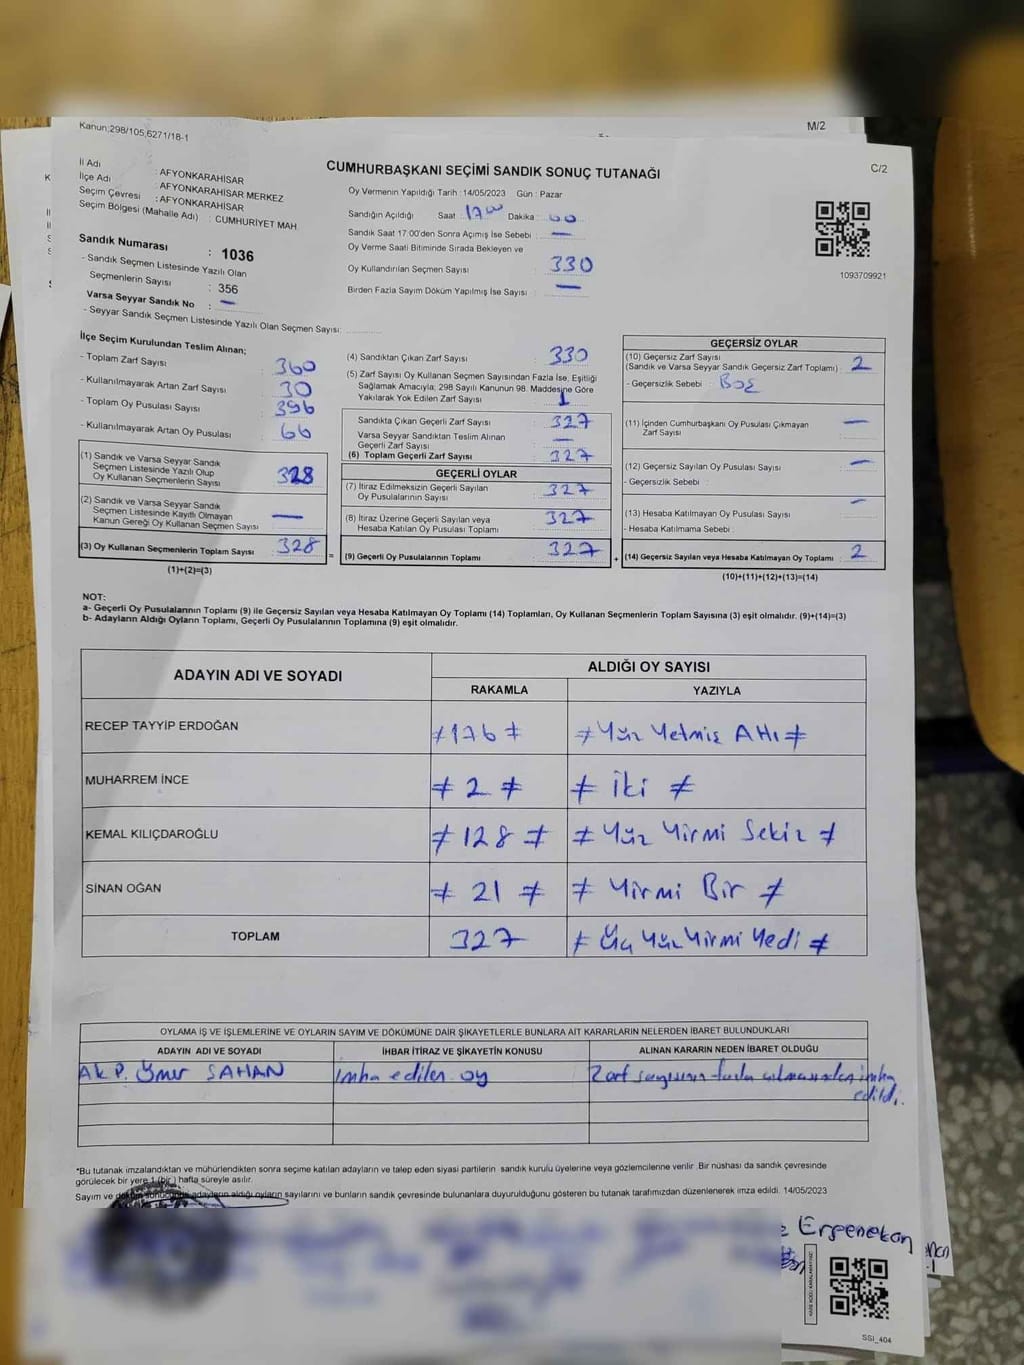 Kanun;298/105,6271/18-1
M/2
C/2
CUMHURBAŞKANI SEÇİMİ SANDIK SONUÇ TUTANAĞI
İl Adı : AFYONKARAHİSAR
İlçe Adı : AFYONKARAHİSAR MERKEZ
Seçim Çevresi : AFYONKARAHİSAR
Seçim Bölgesi (Mahalle Adı) : CUMHURİYET MAH
Sandık Numarası : 1036
- Sandık Seçmen Listesinde Yazılı Olan
Seçmenlerin Sayısı : 356
Varsa Seyyar Sandık No : —
- Seyyar Sandık Seçmen Listesinde Yazılı Olan Seçmen Sayısı:
Oy Vermenin Yapıldığı Tarih :14/05/2023 Gün : Pazar
Sandığın Açıldığı Saat : 17 00 Dakika : 00
Sandık Saat 17:00'den Sonra Açımış İse Sebebi : —
Oy Verme Saati Bitiminde Sırada Bekleyen ve
Oy Kullandırılan Seçmen Sayısı : 330
Birden Fazla Sayım Döküm Yapılmış İse Sayısı : —
1093709921
İlçe Seçim Kurulundan Teslim Alınan;
- Toplam Zarf Sayısı : 360
- Kullanılmayarak Artan Zarf Sayısı : 30
- Toplam Oy Pusulası Sayısı : 396
- Kullanılmayarak Artan Oy Pusulası : 66
(1) Sandık ve Varsa Seyyar Sandık
Seçmen Listesinde Yazılı Olup
Oy Kullanan Seçmenlerin Sayısı : 328
(2) Sandık ve Varsa Seyyar Sandık
Seçmen Listesinde Kayıtlı Olmayan
Kanun Gereği Oy Kullanan Seçmen Sayısı : —
(3) Oy Kullanan Seçmenlerin Toplam Sayısı : 328
(1)+(2)=(3)
(4) Sandıktan Çıkan Zarf Sayısı : 330
(5) Zarf Sayısı Oy Kullanan Seçmen Sayısından Fazla İse, Eşitliği
Sağlamak Amacıyla, 298 Sayılı Kanunun 98. Maddesine Göre
Yakılarak Yok Edilen Zarf Sayısı : 1
Sandıkta Çıkan Geçerli Zarf Sayısı : 327
Varsa Seyyar Sandıktan Teslim Alınan
Geçerli Zarf Sayısı : —
(6) Toplam Geçerli Zarf Sayısı : 327
GEÇERLİ OYLAR
(7) İtiraz Edilmeksizin Geçerli Sayılan
Oy Pusulalarının Sayısı : 327
(8) İtiraz Üzerine Geçerli Sayılan veya
Hesaba Katılan Oy Pusulası Toplamı : 327
(9) Geçerli Oy Pusulalarının Toplamı : 327
GEÇERSİZ OYLAR
(10) Geçersiz Zarf Sayısı
(Sandık ve Varsa Seyyar Sandık Geçersiz Zarf Toplamı) : 2
- Geçersizlik Sebebi : BOŞ
(11) İçinden Cumhurbaşkanı Oy Pusulası Çıkmayan
Zarf Sayısı : —
(12) Geçersiz Sayılan Oy Pusulası Sayısı : —
- Geçersizlik Sebebi :
(13) Hesaba Katılmayan Oy Pusulası Sayısı : —
- Hesaba Katılmama Sebebi :
(14) Geçersiz Sayılan veya Hesaba Katılmayan Oy Toplamı : 2
(10)+(11)+(12)+(13)=(14)
NOT:
a- Geçerli Oy Pusulalarının Toplamı (9) ile Geçersiz Sayılan veya Hesaba Katılmayan Oy Toplamı (14) Toplamları, Oy Kullanan Seçmenlerin Toplam Sayısına (3) eşit olmalıdır. (9)+(14)=(3)
b- Adayların Aldığı Oyların Toplamı, Geçerli Oy Pusulalarının Toplamına (9) eşit olmalıdır.
ADAYIN ADI VE SOYADI ALDIĞI OY SAYISI
RAKAMLA YAZIYLA
RECEP TAYYİP ERDOĞAN ≠ 176 ≠ ≠ Yüz Yetmiş Altı ≠
MUHARREM İNCE ≠ 2 ≠ ≠ İki ≠
KEMAL KILIÇDAROĞLU ≠ 128 ≠ ≠ Yüz Yirmi Sekiz ≠
SİNAN OĞAN ≠ 21 ≠ ≠ Yirmi Bir ≠
TOPLAM 327 ≠ Üç Yüz Yirmi Yedi ≠
OYLAMA İŞ VE İŞLEMLERİNE VE OYLARIN SAYIM VE DÖKÜMÜNE DAİR ŞİKAYETLERLE BUNLARA AİT KARARLARIN NELERDEN İBARET BULUNDUKLARI
ADAYIN ADI VE SOYADI İHBAR İTİRAZ VE ŞİKAYETİN KONUSU ALINAN KARARIN NEDEN İBARET OLDUĞU
AK P. Ömer ŞAHAN İmha edilen oy Zarf sayısının fazla çıkmasından imha
edildi.
*Bu tutanak imzalandıktan ve mühürlendikten sonra seçime katılan adayların ve talep eden siyasi partilerin sandık kurulu üyelerine veya gözlemcilerine verilir .Bir nüshası da sandık çevresinde
görülecek bir yere 1 (bir ) hafta süreyle asılır.
Sayım ve döküm sonucunda adayların aldığı oyların sayılarını ve bunların sandık çevresinde bulunanlara duyurulduğunu gösteren bu tutanak tarafımızdan düzenlenerek imza edildi. 14/05/2023
Ergenekon
SSI_404